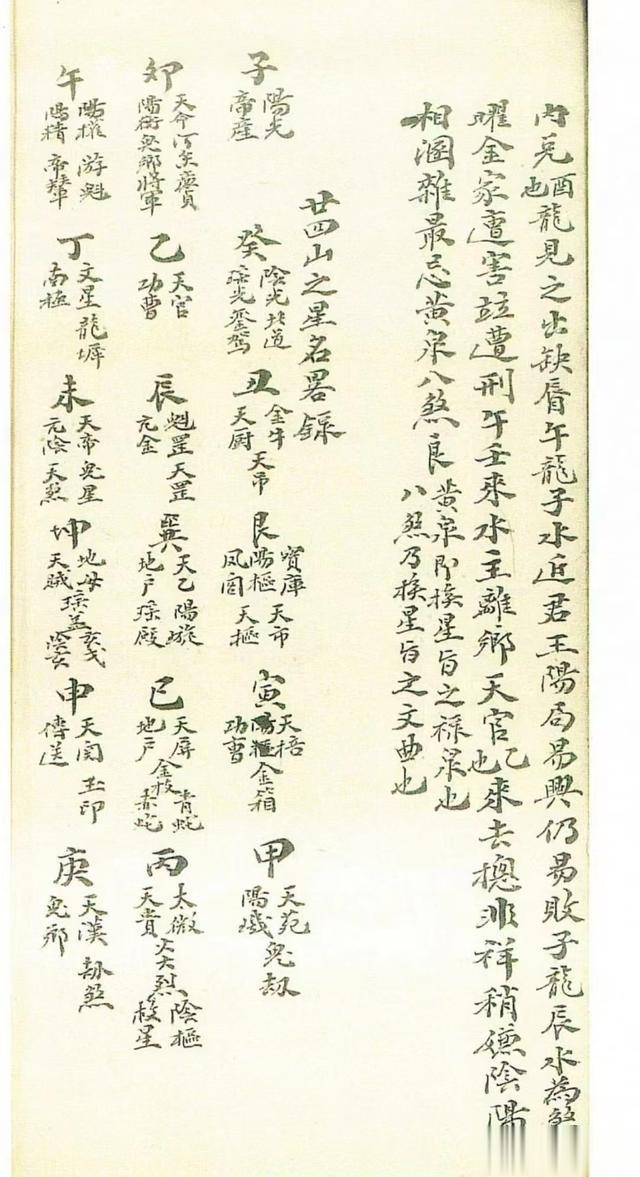 内兌酉也龍見之出缺唇午龍子水近君王陽局易興仍易敗子龍辰水為煞
曜金家遭害並遭刑午壬來水主離鄉天官乙也來去摠非祥稍嫌陰陽
相溷雜最忌黃泉八煞良黃泉即挨星旨之祿泉也八煞乃挨星旨之文曲也
廿四山之星名畧錄
子陽光帝座 癸陰光北道瑤光鑾駕 丑金牛天厨天吊 艮寳庫陽樞鳳閣天市天樞 寅天棓陽樞功曹金箱 甲天苑陽璣鬼劫
卯天命陽衡鬼鄉將軍廉貞 乙天官功曹 辰魁罡元金天罡 巽天乙地户陽旋瑤殿 巳天屏地户金枝青蛇赤蛇 丙太微天貴炎烈陰樞枝星
午陽權陽精游魁帝輦 丁文星南極龍墀 未天帝元陰鬼星天煞 坤地母天賊瑤盖玄戈 申天関傳送玉印 庚天漢鬼鄉劫煞